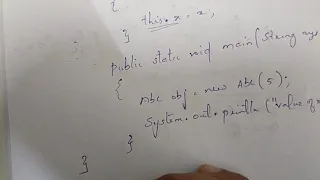 {
this.x = x;
}
public static void main(String
{
Abc obj = new Abc(5);
System.out.println("value of
}
}